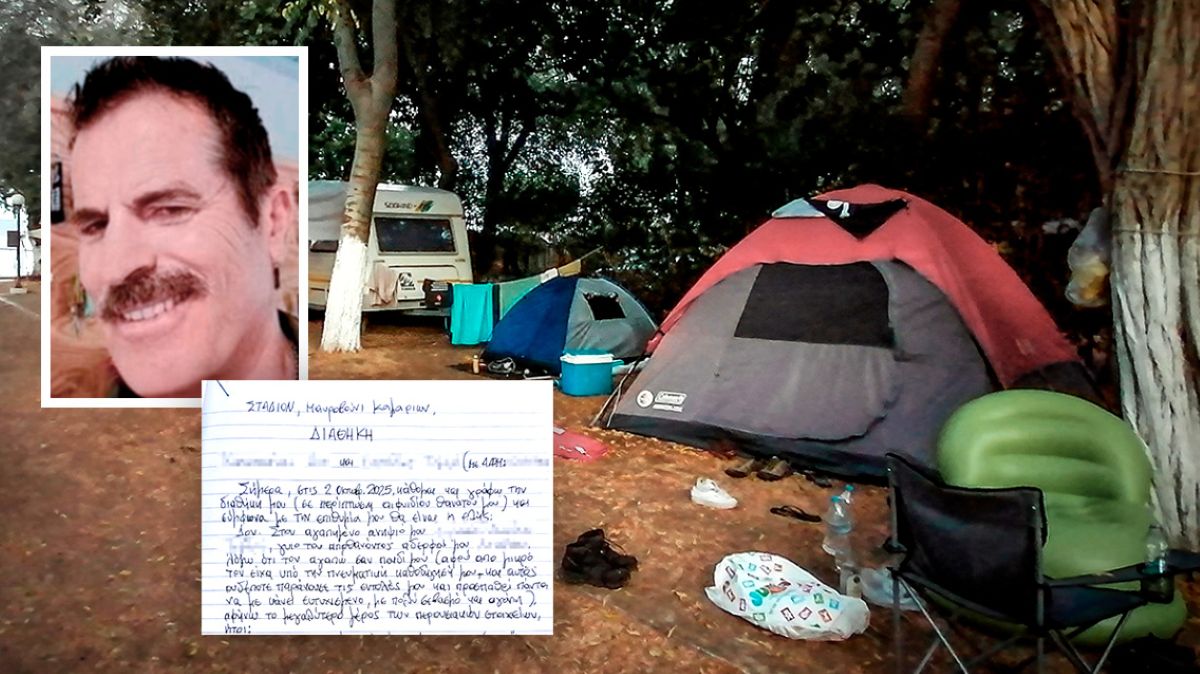 ΣΤΑΔΙΟΝ, Μαυροβούνι Καμαριων,
ΔΙΑΘΗΚΗ
και
Σήμερα, στις 2 Οκτωβ. 2025, κάθομαι και γράφω την
διαθήκη μου (σε περίπτωση αιφνιδίου θανάτου μου) και
σύμφωνα με την επιθυμία μου θα είναι η εξής:
1ον. Στον αγαπημένο ανηψιό μου
, γυιο του αποθανόντος αδερφού μου
λόγω ότι τον αγαπώ σαν παιδί μου (αφού απο μικρό
τον είχα υπό την πνευματική καθοδήγησή μου και αυτός
ουδέποτε παράκουσε τις εντολές μου και προσπαθεί πάντα
να με κάνει ευτυχισμένο, με πολύ σεβασμό και αγάπη),
αφήνω το μεγαλύτερο μέρος των περουσιακών στοιχείων,
ήτοι:
Coleman